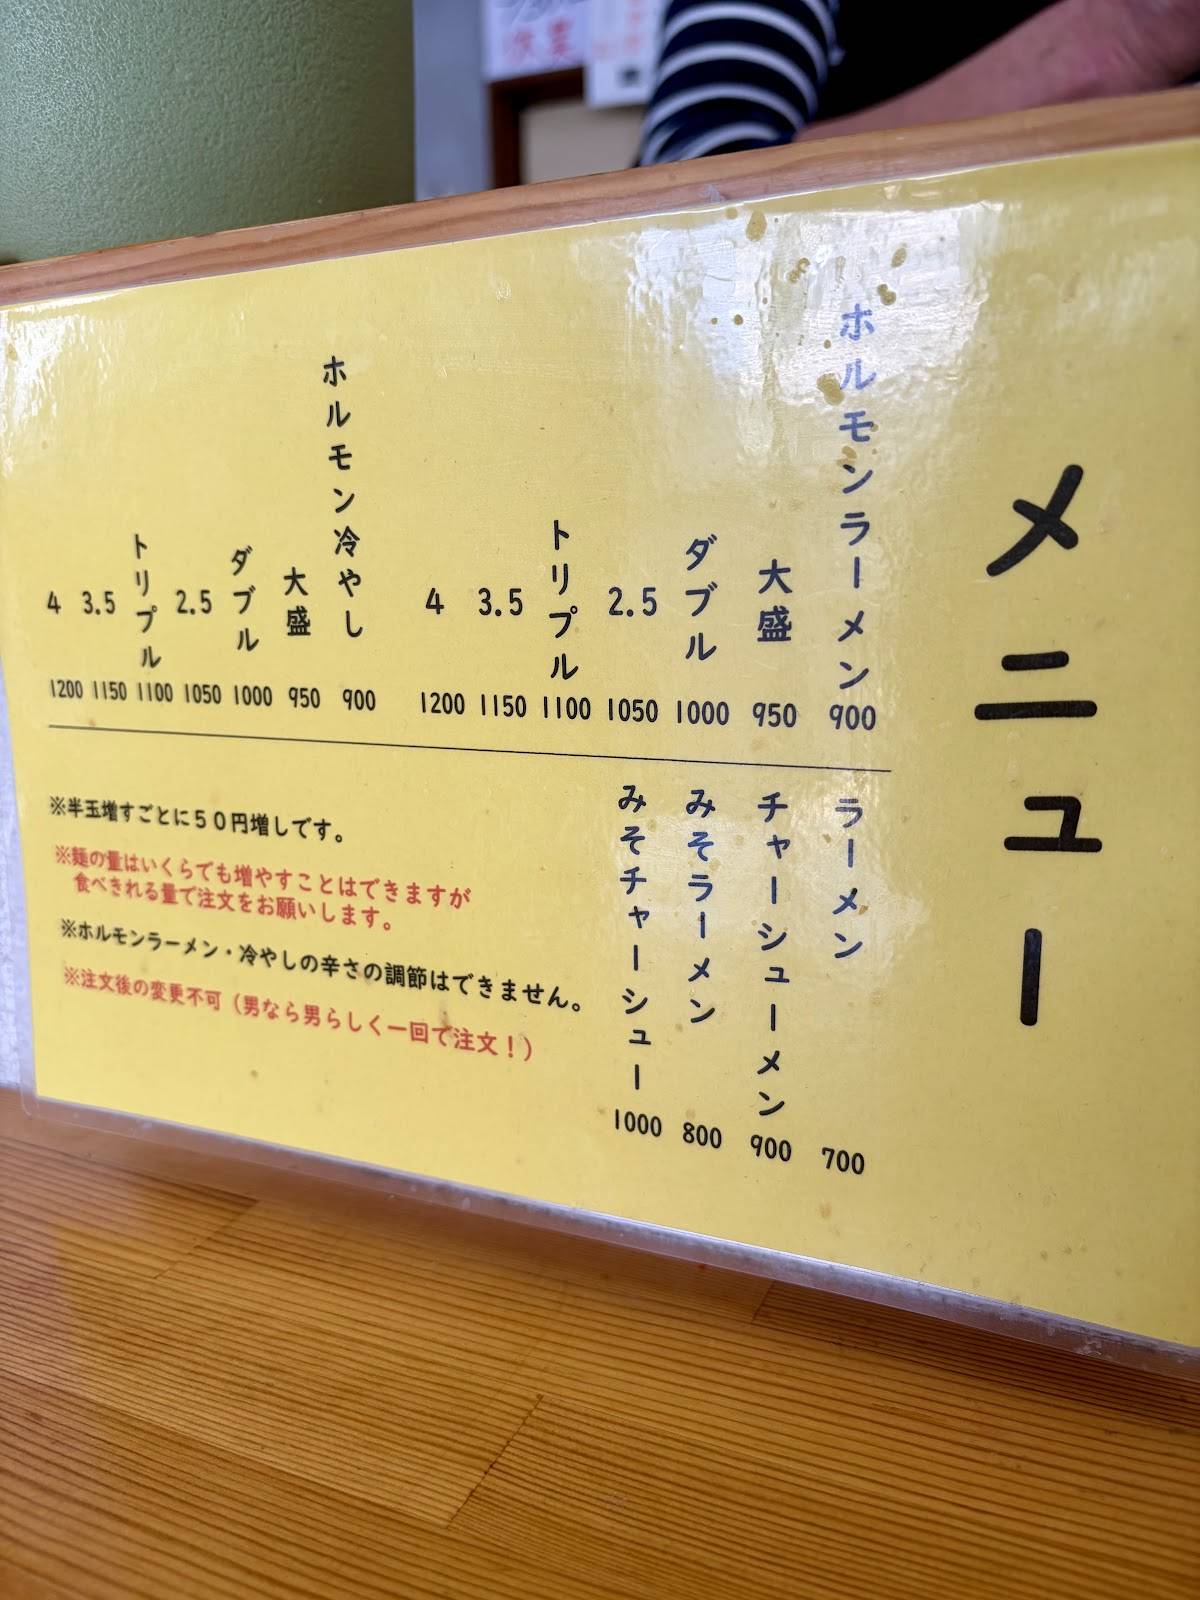 メニュー
ホルモンラーメン 900
大盛 950
ダブル 1000
2.5 1050
トリプル 1100
3.5 1150
4 1200
ホルモン冷やし 900
大盛 950
ダブル 1000
2.5 1050
トリプル 1100
3.5 1150
4 1200
ラーメン 700
チャーシューメン 900
みそラーメン 800
みそチャーシュー 1000
※半玉増すごとに50円増しです。
※麺の量はいくらでも増やすことはできますが
食べきれる量で注文をお願いします。
※ホルモンラーメン・冷やしの辛さの調節はできません。
※注文後の変更不可（男なら男らしく一回で注文！）